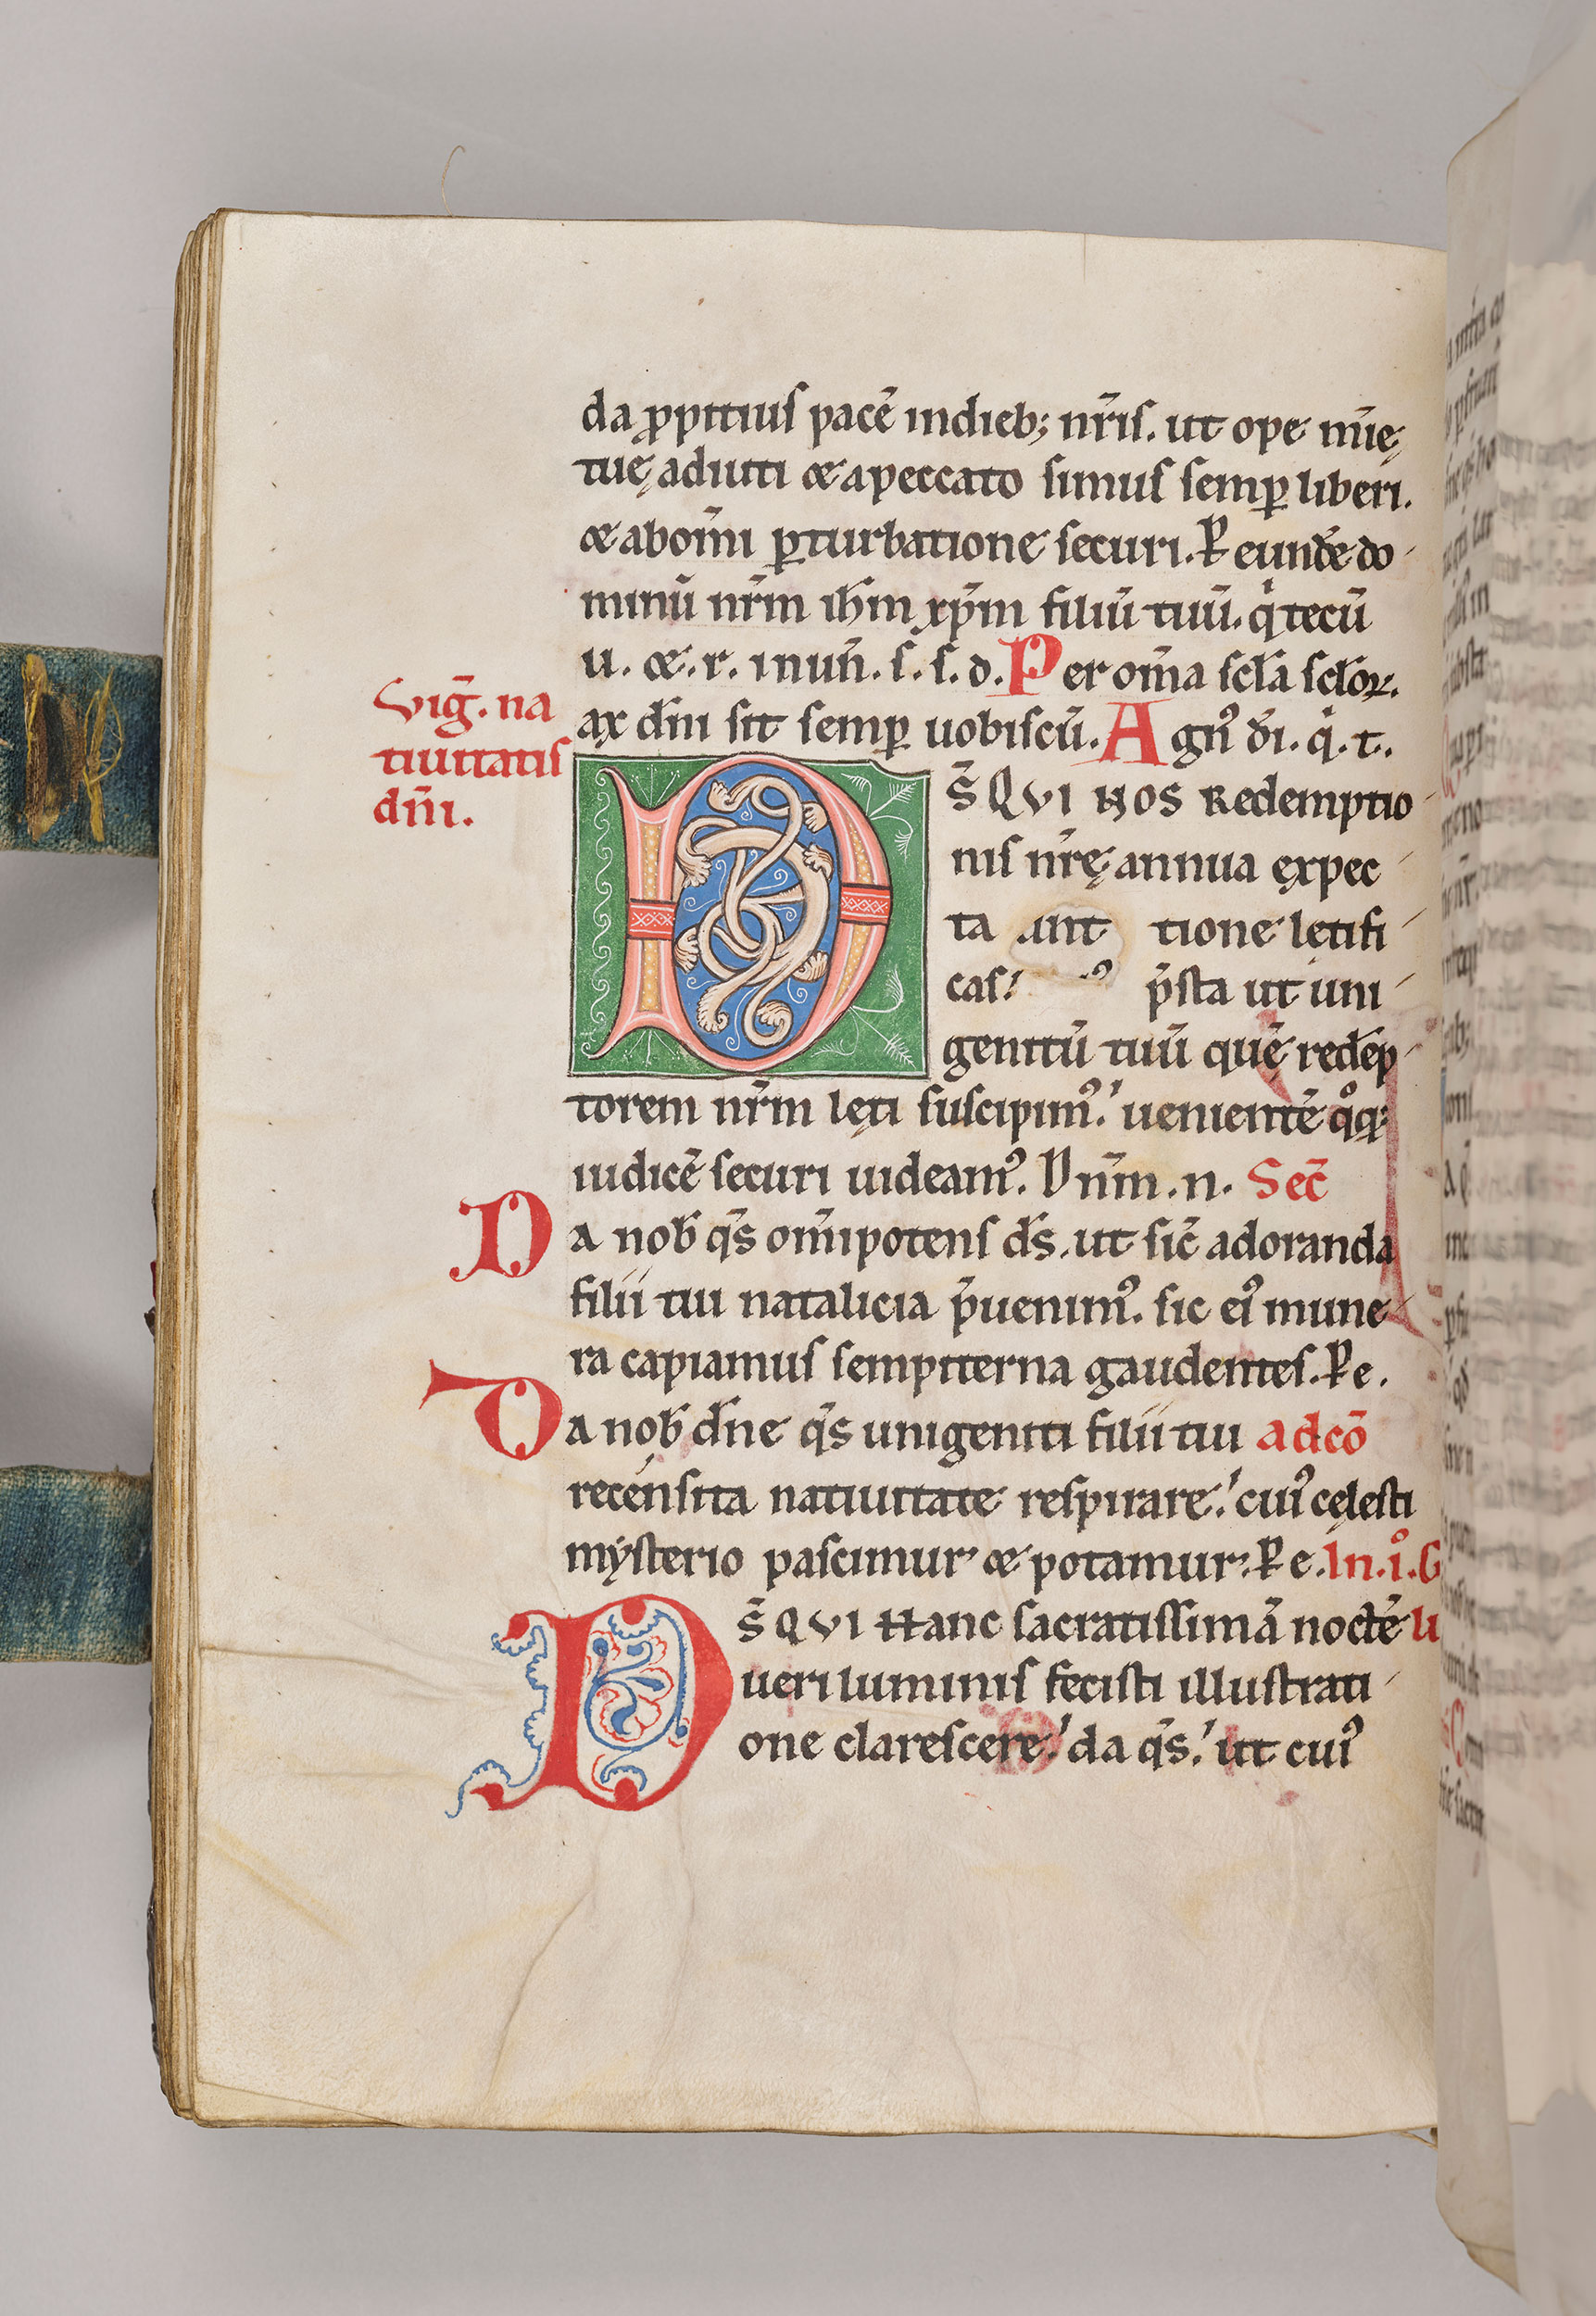 da ꝓpitiuſ pacē indieb; nr̄iſ. ut ope mīę
tuę adiuti & apeccato ſimuſ ſemꝑ liberi.
& abom̄i ꝑturbatione ſecuri. P eundē do
minū nr̄m ih̄m xp̄m filiū tuū. q̇ tecū
u. &. r. inun̄. ſ. ſ. d. Per om̄a ſcl̄a ſcl̄oꝝ.
Viḡ. na
tiuitatiſ
dn̄i.
ax dn̄i ſit ſemꝑ uobiſcū. Agn᷒ dī. q̇. t.
Ds̄ QVI NOS Redemptio
niſ nr̄ę annua expec
ta tione lętifi
caſ. p̄ſta ut uni
genitū tuū quē redēp
torem nr̄m lęti ſuſcipim᷒. uenientē q̊q;
iudicē ſecuri uideam᷒. Dn̄m. n. Sec̄
Da nob̄ qs̄ om̄ipotenſ ds̄. ut ſic̄ adoranda
filii tui natalicia p̄uenim᷒. ſic ei᷒ mune
ra capiamuſ ſempiterna gaudenteſ. P e.
Da nob̄ dn̄e qs̄ unigeniti filii tui adcō
recenſita natiuitate reſpirare. cui᷒ cęleſti
myſterio paſcimur & potamur. P e. In. i̊. G
Ds̄ QVI Hanc ſacratiſſimā noctē lu
ueri luminiſ feciſti illuſtrati
one clareſcere. da qs̄. ut cui᷒